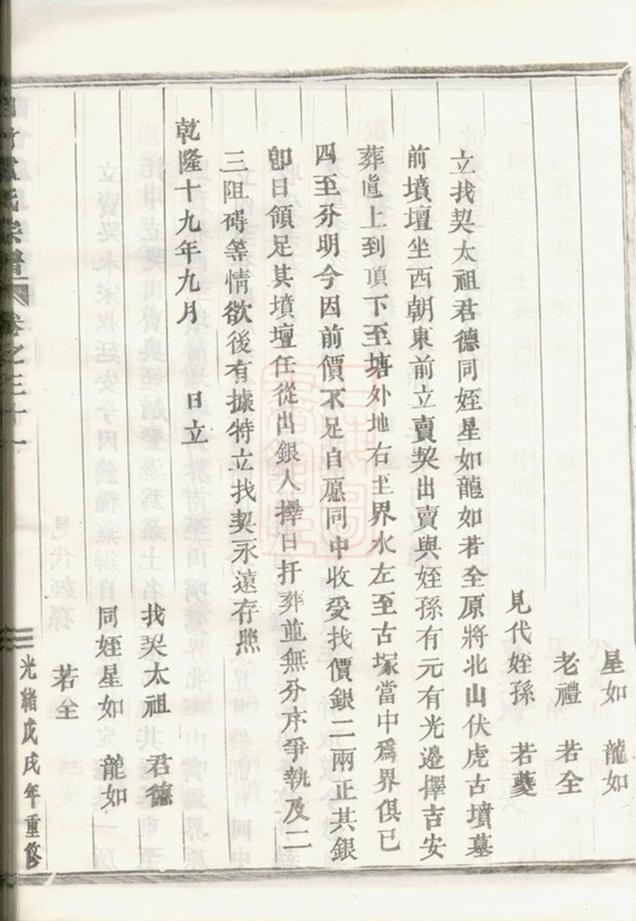 星如　龍如
老禮　若全
見代姪孫　若夔
立找契太祖君德同姪星如龍如若全原將北山伏虎古墳墓
前墳壇坐西朝東前立賣契出賣與姪孫有元有光邊擇吉安
葬眞上到頂下至塘外地右至界水左至古塚當中爲界俱已
四至分明今因前價不足自愿同中收受找價銀二兩正其銀
卽日領足其墳壇任從出銀人擇日扦葬並無分斤爭執及二
三阻碍等情欲後有據特立找契永遠存照
乾隆十九年九月　日立
找契太祖　君德
同姪星如　龍如
若全
氏宗譜　卷之三十一
光緒戊戌年重修